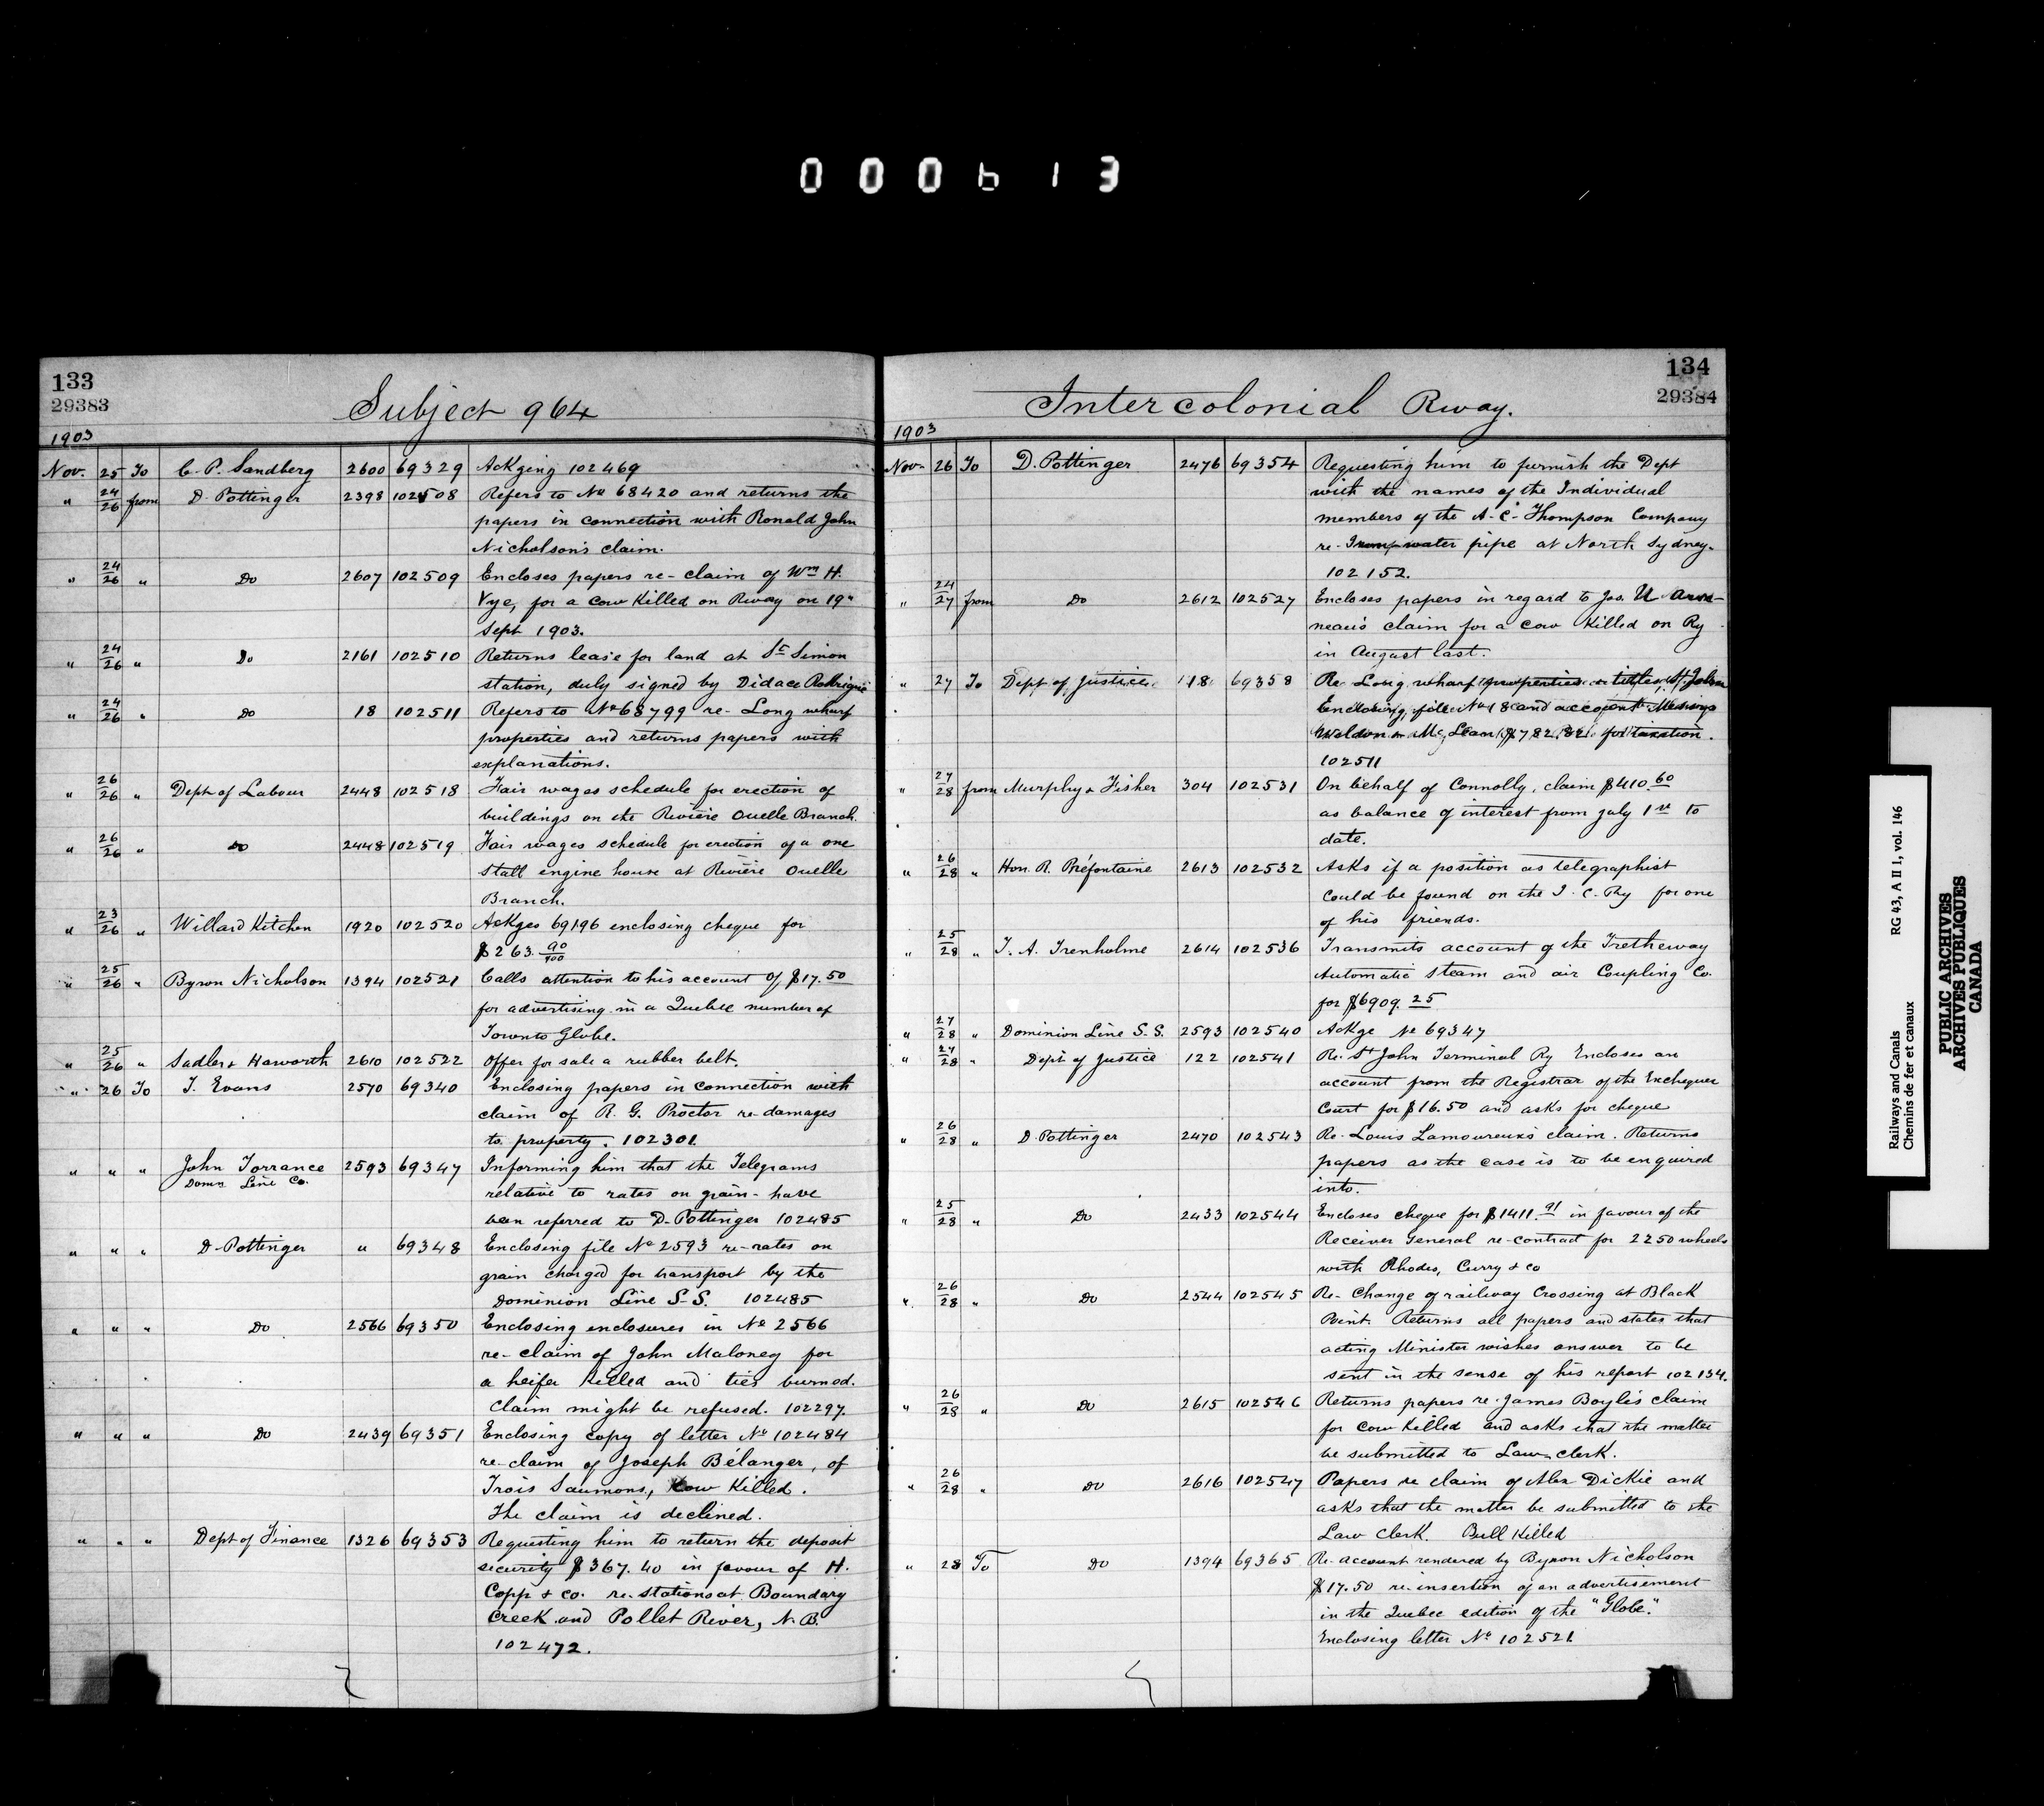 000613
133
29383
Subject 964
1903
Nov. 25 To C. P. Sandberg 2600 69329 Ackging 102469
" 24/26 from D. Pottinger 2398 102508 Refers to No 68420 and returns the
papers in connection with Ronald John
Nicholson's claim.
" 24/26 " Do 2607 102509 Encloses papers re-claim of Wm H.
Vye, for a cow killed on Rway on 19"
Sept 1903.
" 24/26 " Do 2161 102510 Returns lease for land at St Simon
station, duly signed by Didace
" 24/26 " Do 18 102511 Refers to No 68799 re- Long wharf
properties and returns papers with
explanations.
" 26/26 " Dept of Labour 2448 102518 Fair wages schedule for erection of
buildings on the Rivière Ouelle Branch.
" 26/26 " Do 2448 102519 Fair wages schedule for erection of a one
Stall engine house at Rivière Ouelle
Branch.
" 23/26 " Willard Kitchen 1920 102520 Ackges 69196 enclosing cheque for
$263 90/100
" 25/26 " Byron Nicholson 1394 102521 Calls attention to his account of $17.50
for advertising in a Quebec number of
Toronto Globe.
" 25/26 " Sadler & Haworth 2610 102522 Offer for sale a rubber belt.
" 26 To T. Evans 2570 69340 Enclosing papers in connection with
claim of R. G. Proctor re-damages
to property. 102301.
" " " John Torrance 2593 69347 Informing him that the Telegrams
Domn Line Co.
relative to rates on grain- have
been referred to D. Pottinger 102485
" " " D. Pottinger " 69348 Enclosing file No 2593 re-rates on
grain charged for transport by the
Dominion Line S.S. 102485
" " " Do 2566 69350 Enclosing enclosures in No 2566
re- claim of John Maloney for
a heifer killed and ties burned.
Claim might be refused. 102297.
" " " Do 2439 69351 Enclosing copy of letter No 102484
re-claim of Joseph Bélanger, of
Trois Saumons, Cow Killed.
The claim is declined.
" " " Dept of Finance 1326 69353 Requesting him to return the deposit
security $367.40 in favour of H.
Copp & Co. re. stations at Boundary
Creek and Pollet River, N.B.
102472.
134
29384
Intercolonial Rway.
1903
Nov. 26 To D. Pottinger 2476 69354 Requesting him to furnish the Dept
with the names of the Individual
members of the A. C. Thompson Company
re- water pipe at North Sydney.
102152.
" 24/27 from Do 2612 102527 Encloses papers in regard to Jos. U
claim for a cow killed on Ry
in August last.
" 27 To Dept of Justice 18 69358 Re- Long wharf properties titles, St John
Enclosing file No 18 and account Messrs
Weldon & McLean, $782.82 for taxation.
102511
" 27/28 from Murphy & Fisher 304 102531 On behalf of Connolly, claim $410.60
as balance of interest from July 1st to
date.
" 26/28 " Hon. R. Préfontaine 2613 102532 Asks if a position as telegraphist
could be found on the I. C. Ry for one
of his friends.
" 25/28 " T. A. Trenholme 2614 102536 Transmits account of the Tretheway
Automatic Steam and air Coupling Co.
for $6909.25
" 27/28 " Dominion Line S.S. 2593 102540 Ackge No 69347
" 27/28 " Dept of Justice 122 102541 Re. St John Terminal Ry Encloses an
account from the Registrar of the Exchequer
Court for $16.50 and asks for cheque
" 26/28 " D. Pottinger 2470 102543 Re. Louis Lamoureux's claim. Returns
papers as the case is to be enquired
into.
" 25/28 " Do 2433 102544 Encloses cheque for $1411.91 in favour of the
Receiver General re-contract for 2250 wheels
with Rhodes, Curry & Co
" 26/28 " Do 2544 102545 Re- Change of railway Crossing at Black
Point. Returns all papers and states that
acting Minister wishes answer to be
sent in the sense of his report 102134.
" 26/28 " Do 2615 102546 Returns papers re. James Boyle's claim
for cow killed and asks that the matter
be submitted to Law clerk.
" 26/28 " Do 2616 102547 Papers re claim of Alex Dickie and
asks that the matter be submitted to the
Law Clerk. Bull Killed
" 28 To Do 1394 69365 Re- account rendered by Byron Nicholson
$17.50 re-insertion of an advertisement
in the Quebec edition of the "Globe."
Enclosing letter No 102521.
Railways and Canals RG 43, A II 1, vol. 146
Chemins de fer et canaux
PUBLIC ARCHIVES
ARCHIVES PUBLIQUES
CANADA